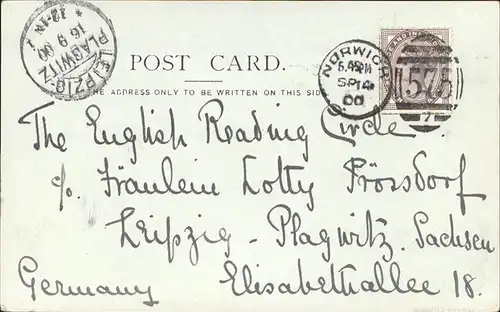 LEIPZIG
PLAGWITZ
16 9 00
POST CARD.
THE ADDRESS ONLY TO BE WRITTEN ON THIS SIDE
NORWICH
SP 14
00
575
The English Reading Circle
c/o. Fräulein Lotty Prössdorf
Leipzig - Plagwitz. Sachsen
Germany Elisabethallee 18.